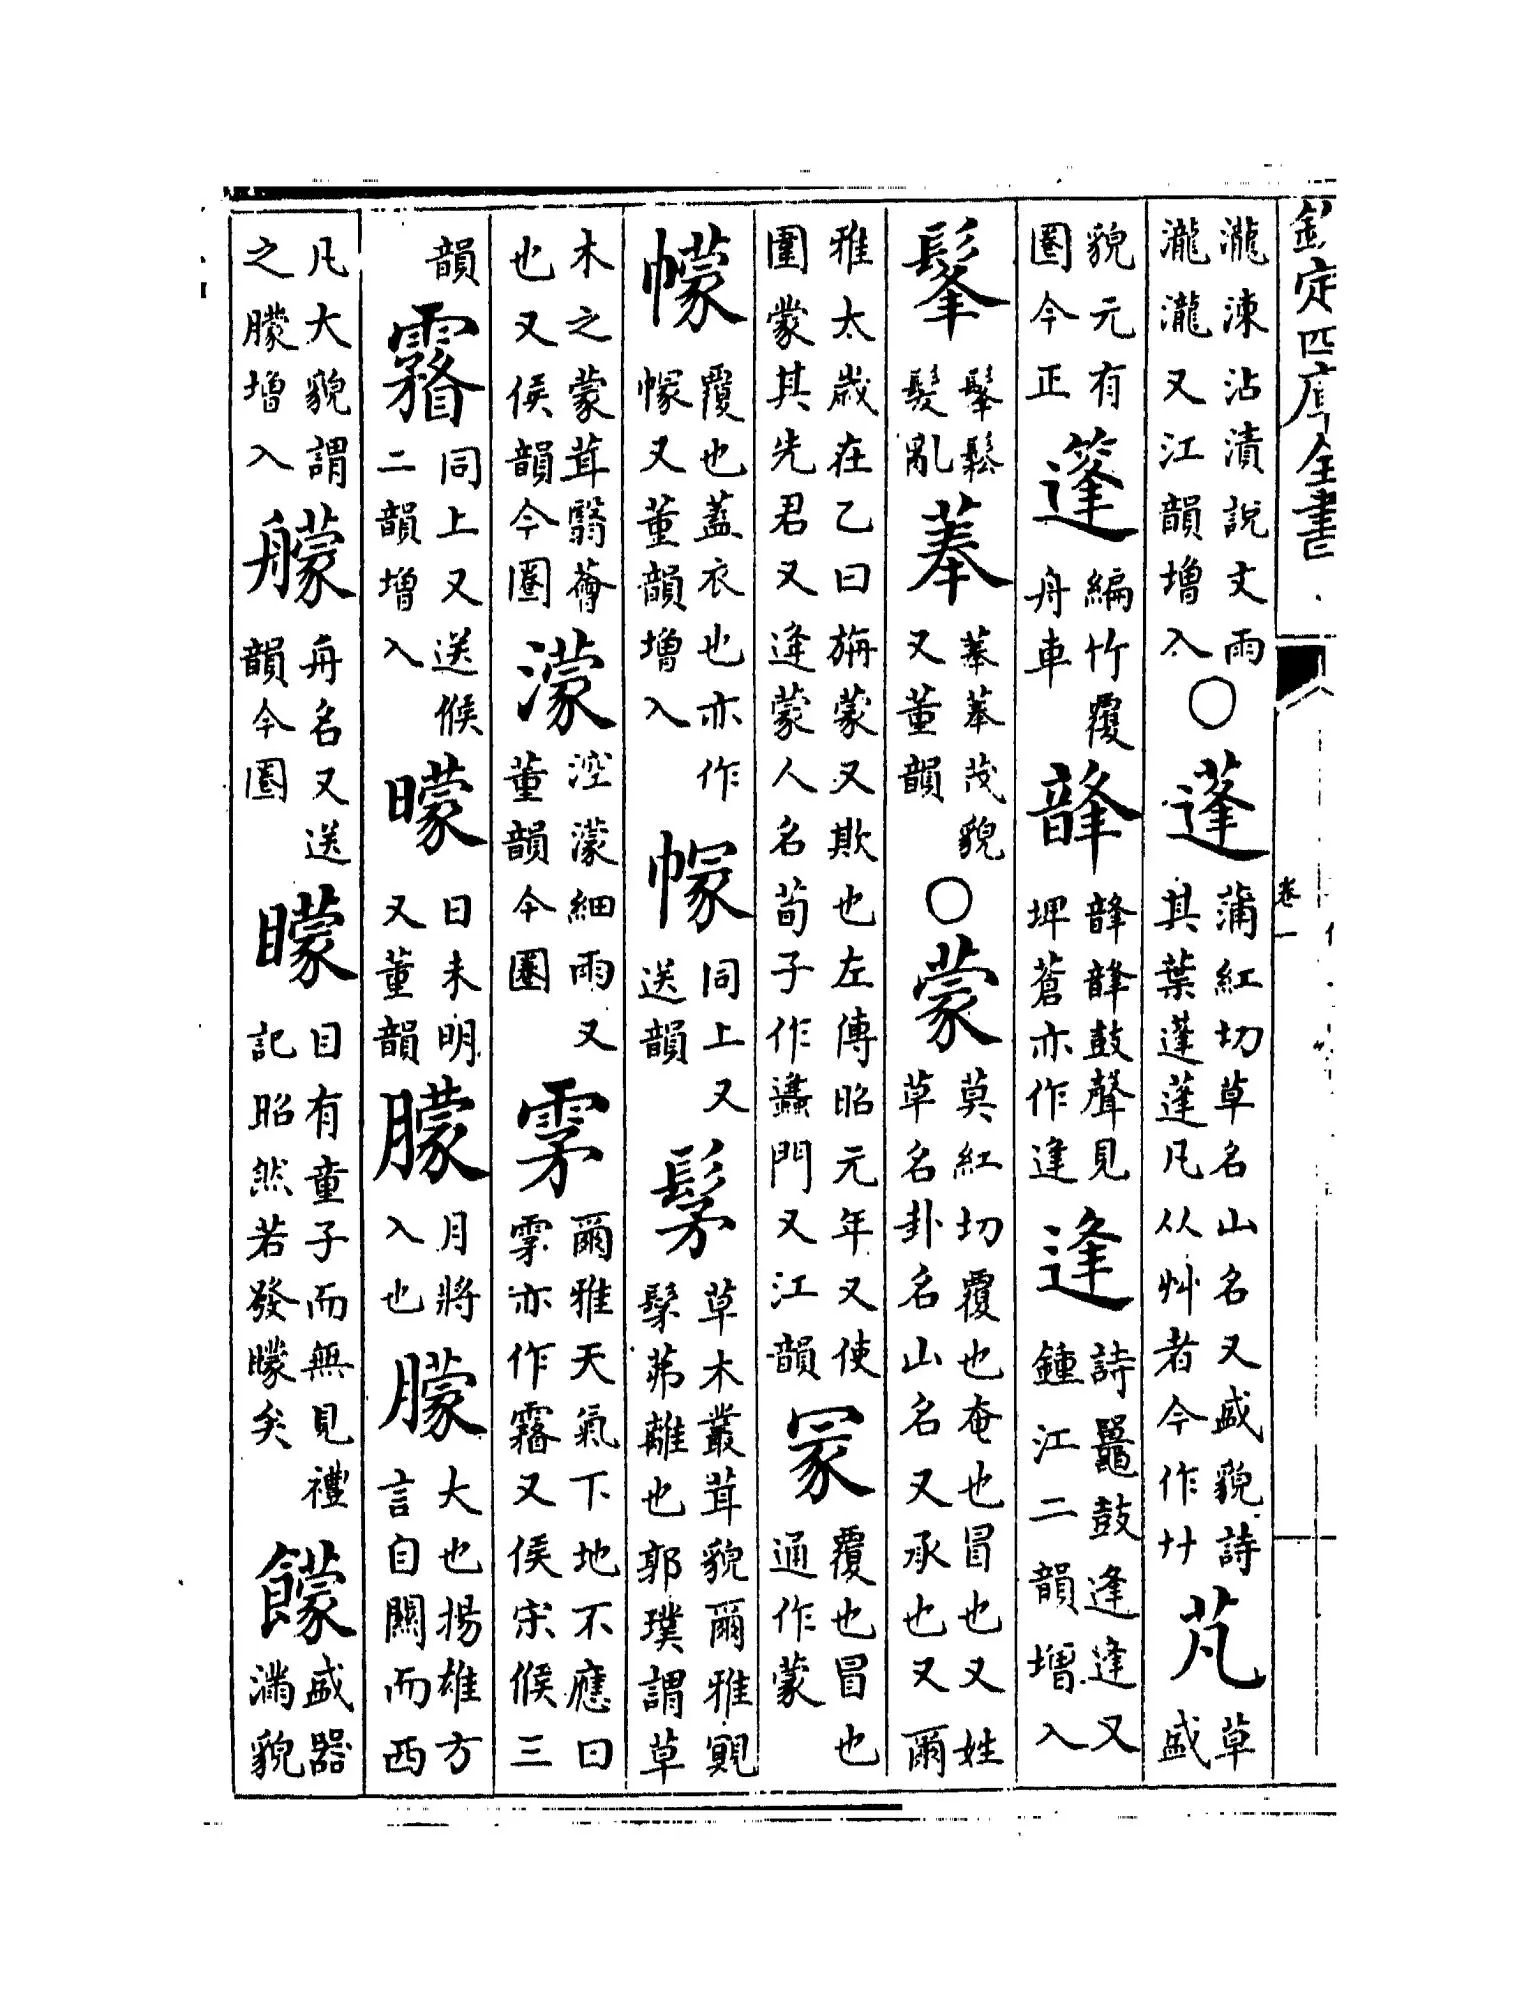 欽定四庫全書
卷一
瀧涷沾漬說文雨瀧瀧又江韻增入○蓬蒲紅切草名山名又盛貌詩其葉蓬蓬凡从艸者今作卄芃草盛
貌元有圈今正篷編竹覆舟車韸韸韸鼓聲見埤蒼亦作逢逢詩鼉鼓逢逢又鍾江二韻增入
髼髼鬆髮亂菶菶菶茂貌又董韻○蒙莫紅切覆也奄也冒也又姓草名卦名山名又承也又爾
雅太歲在乙曰旃蒙又欺也左傳昭元年又使圍蒙其先君又逢蒙人名荀子作蠭門又江韻冡覆也冒也通作蒙
幪覆也蓋衣也亦作幏又董韻增入幏同上又送韻髳草木叢茸貌爾雅覭髳茀離也郭璞謂草
木之蒙茸翳薈也又侯韻今圈濛涳濛細雨又董韻今圈雺爾雅天氣下地不應曰雺亦作霿又侯宋候三
韻霿同上又送候二韻增入曚日未明又董韻朦月將入也朦大也揚雄方言自關而西
凡大貌謂之朦增入艨舟名又送韻今圈矇目有童子而無見禮記昭然若發矇矣饛盛器滿貌